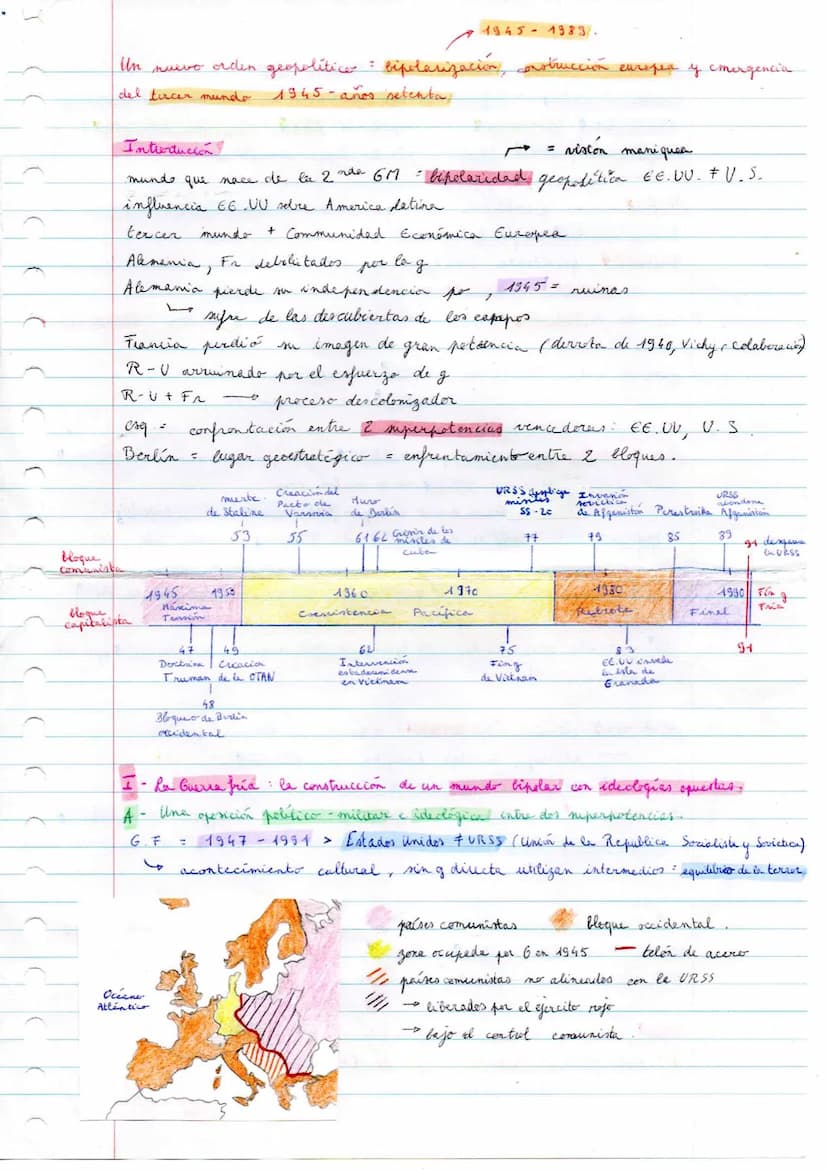 1945 - 1989.
Un nuevo orden geopolítico = bipolarización, construcción europea y emergencia
del tercer mundo 1945 - años setenta
Introducción
= visión maniquea
mundo que nace de la 2nda GM = bipolaridad geopolítica EE.UU. ≠ U.S.
influencia EE.UU sobre America latina
tercer mundo + Communidad Económica Europea
Alemania, Fr debilitados por la g
Alemania pierde su independencia po , 1945 = ruinas
sufre de las descubiertas de los campos
Francia perdió su imagen de gran potencia (derrota de 1940, Vichy, colaboración)
R-U arruinado por el esfuerzo de g
R-U + Fr → proceso descolonizador
csq = confrontación entre 2 superpotencias vencedoras: EE.UU, U.S.
Berlín = lugar geoestratégico = enfrentamiento entre 2 bloques.
muerte de Staline
Creación del Pacto de Varsovia
Muro de Berlín
URSS despliega misiles SS-20
Invasión soviética de Afganistán
Perestroika
URSS abandona Afganistán
53 55 61 62 Crisis de los misiles de Cuba 77 79 85 89 91 desaparece la URSS
bloque comunista
1945 1950 1960 1970 1980 1990 Fin g Fría
bloque capitalista
Máxima Tensión
Coexistencia Pacífica
Rebrote
Final
47 49 62 75 83 91
Doctrina Truman
Creación de la OTAN
Intervención estadounidense en Vietnam
Fin g de Vietnam
EE.UU invade la isla de Granada
48
Bloqueo de Berlín occidental
I - La Guerra fría : la construcción de un mundo bipolar con ideologías opuestas.
A - Una oposición político-militar e ideológica entre dos superpotencias.
G.F = 1947 - 1991 > Estados Unidos ≠ URSS (Unión de la Republica Socialista y Soviética)
acontecimiento cultural, sin g directa utilizan intermedios = equilibrio de la terror
países comunistas
bloque occidental.
zona ocupada por G en 1945
telón de acero
países comunistas no alineados con la URSS
→ liberados por el ejercito rojo
→ bajo el control comunista.
Océano Atlántico